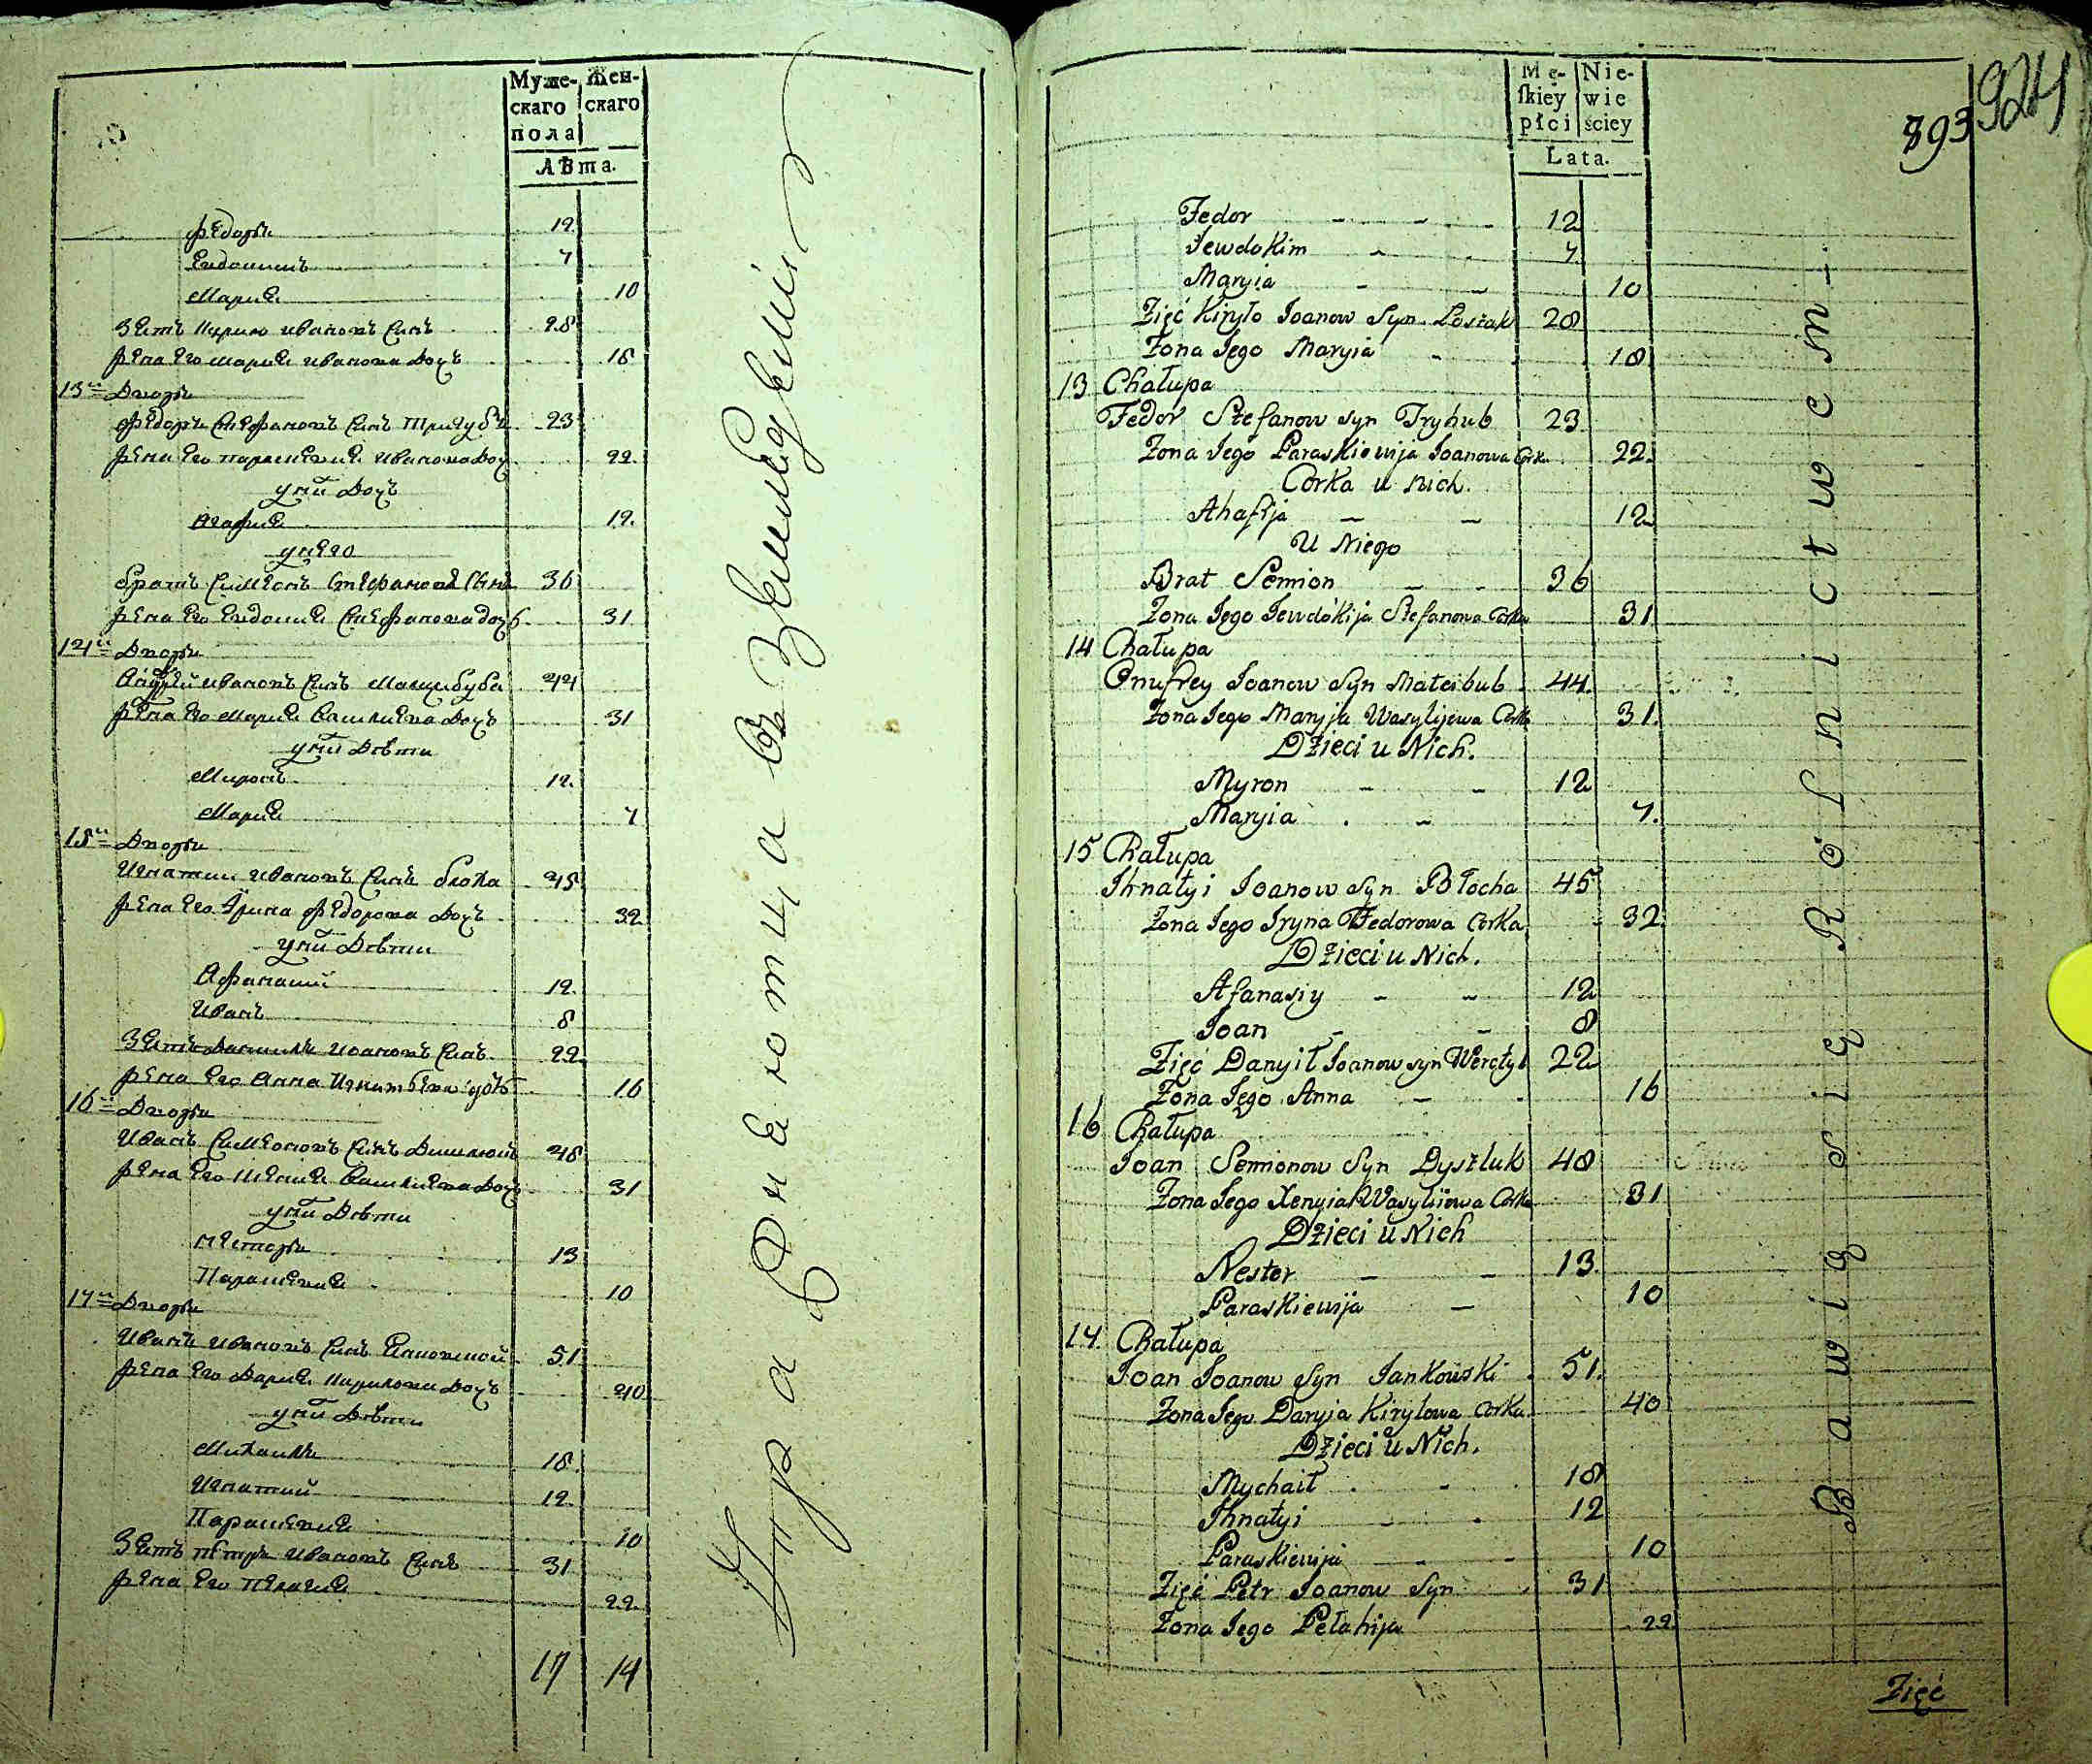 Муже-
скаго
пола
Жен-
скаго
Лѣта.
Федоръ 12
Евдокимъ 7
Мария 10
Зять Кирило Ивановъ Сынъ 28
Жена Его Мария Иванова Дочь 18
13й Дворъ
Федоръ Стефановъ Сынъ Тригубъ 23
Жена Его Параскевия Иванова Доч 22
у них Дочь
Агафия 12
у него
братъ Симеонъ Стефановъ Сынъ 36
Жена Его Евдокия Стефанова дочь 31
14й Дворъ
Ивановъ Сынъ Мацибуба 44
Жена Его Мария Василиева Дочь 31
у них Дѣти
Миронъ 12
Мария 7
15й Дворъ
Игнатии Ивановъ Сынъ блоха 45
Жена Его Ирина Федорова Дочь 32
у них Дѣти
Афанасий 12
Иванъ 8
Зять Даниилъ Ивановъ Сынъ 22
Жена Его Анна Игнатьева дочь 16
16й Дворъ
Иванъ Симеоновъ Сынъ Дишлюкъ 48
Жена Его Ксения Василиева Дочь 31
у них Дѣти
Нестеръ 13
Параскевия 10
17й Дворъ
Иванъ Ивановъ Сынъ Янковский 51
Жена Его Дария Кирилова Дочь 40
у них Дѣти
Михаилъ 18
Игнатий 12
Параскевия 10
Зять Петръ Ивановъ Сынъ 31
Жена Его Пелагия 22
17 14
Упражняются въ Земледелии
Mę-
skiey
płci
Nie-
wie
ściey
Lata.
893
924
Fedor 12
Jewdokim 7
Maryia 10
Zięć Kiryło Joanow Syn 28
Żona Jego Maryia 18
13 Chałupa
Fedor Stefanow syn Tryhub 23
Żona Jego Paraskiewija Joanowa Corka 22
Corka u nich.
Ahafija 12
U Niego
Brat Semion 36
Żona Jego Jewdokija Stefanowa Corka 31
14 Chałupa
Onufrey Joanow Syn Macibub 44
Żona Jego Maryja Wasylijowa Corka 31
Dzieci u Nich.
Myron 12
Maryia 7.
15 Chałupa
Ihnatyi Joanow Syn Błocha 45
Żona Jego Iryna Fedorowa Corka 32
Dzieci u Nich.
Afanasiy 12
Joan 8
Zięć Danyił Joanow syn 22
Żona Jego Anna 16
16 Chałupa
Joan Semionow Syn Dyszluk 48
Żona Jego Xenyia Wasylijowa Corka 31
Dzieci u Nich
Nester 13
Paraskiewija 10
17. Chałupa
Joan Joanow Syn Jankowski 51.
Żona Jego Daryia Kiryłowa Corka 40
Dzieci u Nich.
Mychaił 18
Ihnatyi 12
Paraskiewija 10
Zięć Petr Joanow Syn 31
Żona Jego Pełahija 22
Bawią się Rólnictwem
Zięć